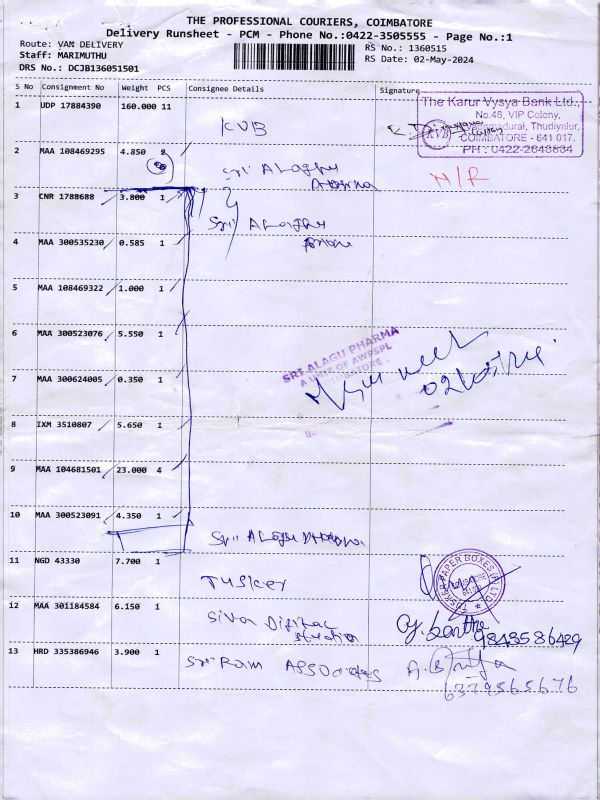 THE PROFESSIONAL COURIERS, COIMBATORE
Delivery Runsheet - PCM - Phone No.:0422-3505555 - Page No.:1
Route: VAN DELIVERY
RS No.: 1360515
Staff: MARIMUTHU
RS Date: 02-May-2024
DRS No.: DCJB136051501
S No Consignment No Weight PCS Consignee Details Signature
1 UDP 17884390 160.000 11 KVB
The Karur Vysya Bank Ltd.,
No.46, VIP Colony,
Thudiyalur,
COIMBATORE - 641 017.
PH : 0422-2643834
KVB
2 MAA 108469295 4.850 2 Sri ALaghu
M/R
3 CNR 1788688 3.800 1 Sri ALaghu
4 MAA 300535230 0.585 1
5 MAA 108469322 1.000 1
6 MAA 300523076 5.550 1
SRI ALAGU PHARMA
A UNIT OF AWPSPL
COIMBATORE
7 MAA 300624005 0.350 1
8 IXM 3510807 5.650 1
9 MAA 104681501 23.000 4
10 MAA 300523091 4.350 1 Sri ALagu
11 NGD 43330 7.700 1 Tusker
TUSKER PAPER BOXES (P) LTD.
12 MAA 301184584 6.150 1 Siva Digital
9843586429
13 HRD 335386946 3.900 1 Sri Ram ASSOciates
6379565676